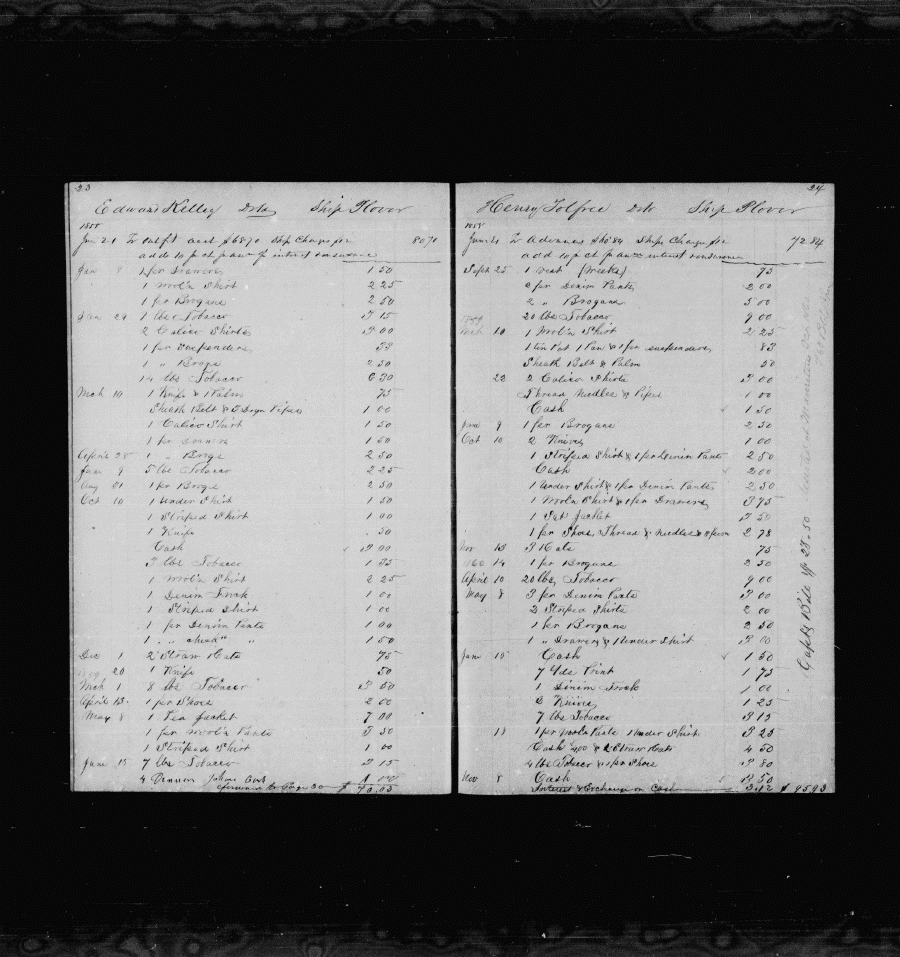 23
Edward Kelley Dr to Ship Plover
Jan 21 To outfit acct $6870 Ship Charge for 80 71
add 10 pr ct for int interest insurance
Jan 8 1 pr Drawers 1 50
1 Wool'n Shirt 2 25
1 pr Brogans 2 50
Jan 29 lbs Tobacco 3 15
2 Calico Shirts 3 00
1 pr Suspenders
1 " Brogs 2 50
14 lbs Tobacco 6 30
Mch 10 1 Knife & 1 Palm 75
Sheath Belt & 3 Dozn Pipes 1 00
1 Calico Shirt 1 50
1 pr Drawers 1 50
April 28 1 " Brogs 2 50
June 9 5 lbs Tobacco 2 25
Aug 31 1 pr Brogs 2 50
Oct 10 1 Under Shirt 1 50
1 Striped Shirt 1 00
1 Knife 50
Cash 3 00
3 lbs Tobacco 1 35
1 Wool'n Shirt 2 25
1 Denim Frock 1 00
1 Striped Shirt 1 00
1 pr Denim Pants 1 00
1 " " " 1 50
Dec 1 2 Straw Hats 75
20 1 Knife 50
Mch 1 8 lbs Tobacco 3 50
April 13 1 pr Shoes 2 00
May 8 1 Pea Jacket 7 00
1 pr Wool'n Pants 3 50
1 Striped Shirt 1 00
June 15 7 lbs Tobacco 3 15
4
forward to Page 30 $ 70.05
24
Henry Tolfree Dr to Ship Plover
Jan 21 To Advances Ship Charge for 72.84
add 10 pr ct for int interest insurance
Sept 25 1 Vest (Weeks) 75
2 pr Denim Pants 2 00
2 " Brogans 5 00
20 lbs Tobacco 9 00
Mch 10 1 Wool'n Shirt 2 25
1 tin Pot 1 Pan & 1 pr suspenders 83
Sheath Belt & Palm 50
22 2 Calico Shirts 3 00
Thread Needles & Pipes 1 00
Cash 1 50
June 9 1 pr Brogans 2 50
Oct 10 2 Knives 1 00
1 Striped Shirt & 1 pr Denim Pants 2 50
Cash 2 00
1 Under Shirt & 1 pr Denim Pants 2 50
1 Wool'n Shirt & 1 pr Drawers 3 75
1 Jacket 3 50
1 pr Shoes, Thread & Needles & Spoon 2 78
Nov 13 3 Hats 75
Dec 14 1 pr Brogans 2 50
April 10 20 lbs, Tobacco 9 00
May 8 3 pr Denim Pants 3 00
2 Striped Shirts 2 00
1 pr Brogans 2 50
1 " Drawers & 1 Under Shirt 3 00
June 15 Cash 1 50
7 Yds Print 1 75
1 Denim Frock 1 00
2 Knives 1 25
7 lbs Tobacco 3 15
18 1 pr Wool'n Pants 1 Under Shirt 3 25
Cash 400 & 2 Straw Hats 4 50
4 lbs Tobacco & 1 pr Shoes 3 80
Nov 8 Cash 3 50
Interest & Exchange on Cash 3.12 $ 95 93
Capts Bill of 23.50